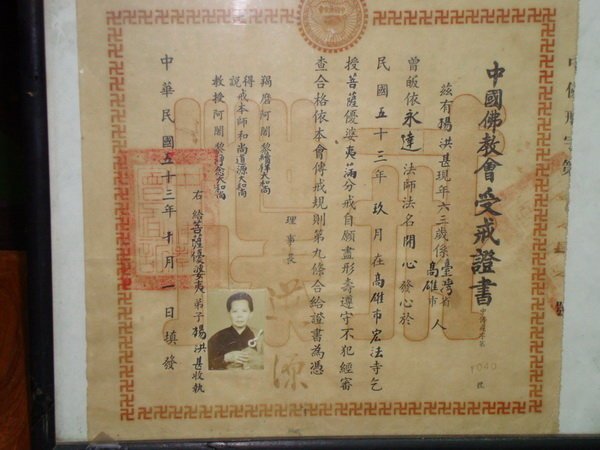 中國佛教會受戒證書
茲有楊洪甚現年六三歲係臺灣省高雄市人
曾皈依永達法師法名開心發心於
民國五十三年玖月在高雄市宏法寺乞
授菩薩優婆夷滿分戒自願盡形壽遵守不犯經審
查合格依本會傳戒規則第九條合給證書為憑
羯磨阿闍黎
得戒本師和尚道源大和尚
說
教授阿闍黎
理事長
右給菩薩優婆夷弟子楊洪甚收執
中華民國五十三年十月一日填發
1040
號